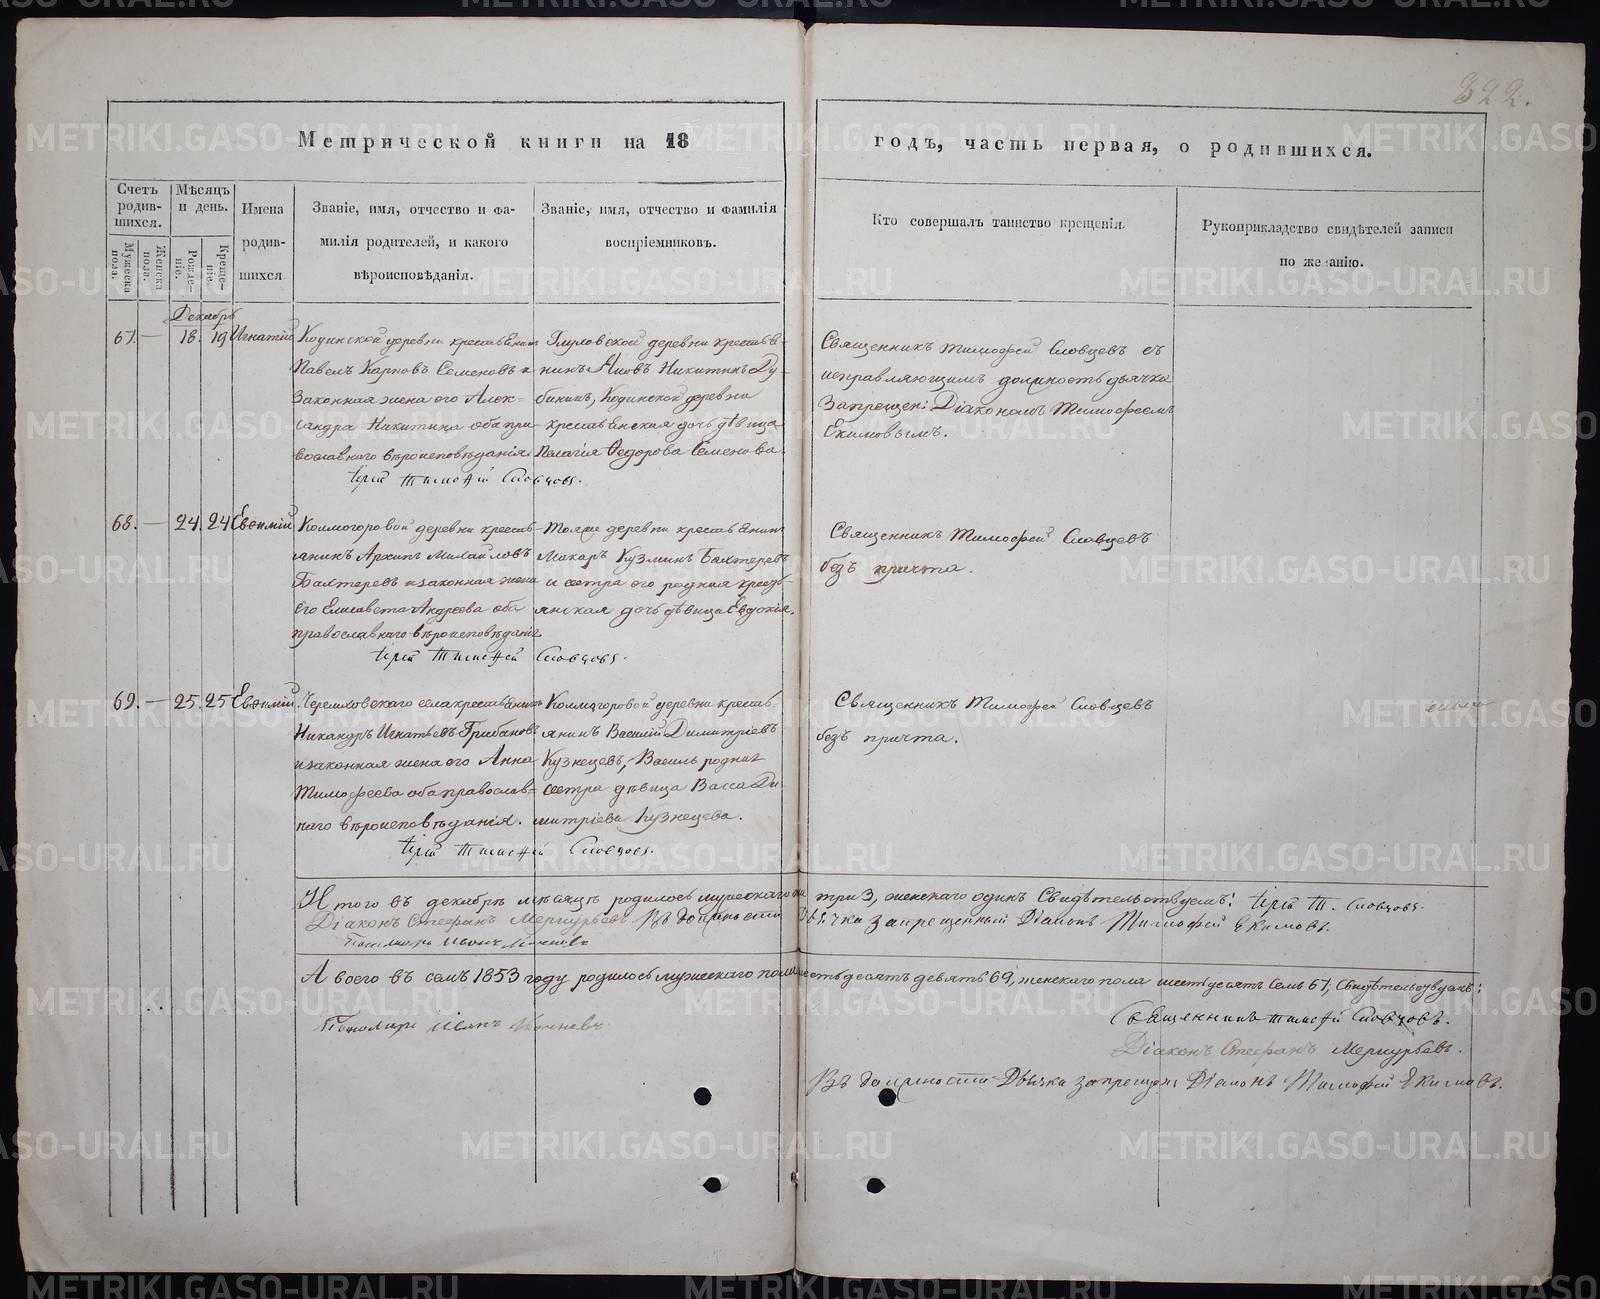 322.
Метрической книги на 18
годъ, часть первая, о родившихся.
Счетъ родив-шихся.
Мужеска пола.
Женска пола.
Мѣсяцъ и день.
Рожде-ніе.
Креще-ніе.
Имена родив-шихся
Званіе, имя, отчество и фа-
милія родителей, и какого
вѣроисповѣданія.
Званіе, имя, отчество и фамилія
воспріемниковъ.
Кто совершалъ таинство крещенія.
Рукоприкладство свидѣтелей записи
по желанію.
Декабрь
67. — 18. 19 Игнатій
Кодинской деревни крестьянинъ
Павелъ Карповъ Семеновъ и
законная жена его Алек-
сандра Никитина оба пра-
вославнаго вѣроисповѣданія.
деревни крестья-
нинъ Іовъ Никитинъ Ду-
бининъ, Кодинской деревни
крестьянская дочь дѣвица
Пелагія Ѳедорова Семенова.
Священникъ Тимофей Словцевъ съ
исправляющимъ должность дьячка
Запрещен: Діакономъ Тимофеемъ
Екимовымъ.
Іерей Тимофей Словцовъ.
68. — 24. 24 Евѳимій
Колмогоровой деревни кресть-
янинъ Архипъ Михайловъ
Бахтеревъ и законная жена
его Елисавета Андреева оба
православнаго вѣроисповѣданія.
Тояже деревни крестьянинъ
Макаръ Кузминъ Бахтеревъ
и сестра его родная кресть-
янская дочь дѣвица Евдокія.
Священникъ Тимофей Словцевъ
безъ причта.
Іерей Тимофей Словцовъ.
69. — 25. 25 Евѳимій
Черемховскаго села крестьянинъ
Никандръ Игнатьевъ Грибановъ
и законная жена его Анна
Тимофеева оба православ-
наго вѣроисповѣданія.
Колмогоровой деревни кресть-
янинъ Василій Димитріевъ
Кузнецевъ, родная
сестра дѣвица Васса Ди-
митріева Кузнецева.
Священникъ Тимофей Словцевъ
безъ причта.
Іерей Тимофей Словцовъ.
Итого въ декабрѣ мѣсяцѣ родилось мужескаго три 3, женскаго одинъ Свидѣтельствуемъ: Іерей Т. Словцовъ.
Діаконъ Стефанъ Меркурьевъ Въ должности Дьячка Запрещенный Діаконъ Тимофей Екимовъ.
Пономарь Иванъ
А всего въ семъ 1853 году родилось мужескаго пола шестьдесятъ девять 69, женскаго пола шестьдесятъ семь 67, Свидѣтельствуемъ:
Пономарь Иванъ
Священникъ Тимофей Словцовъ.
Діаконъ Стефанъ Меркурьевъ.
Въ должности Дьячка запрещен: Діаконъ Тимофей Екимовъ.
METRIKI.GASO-URAL.RU